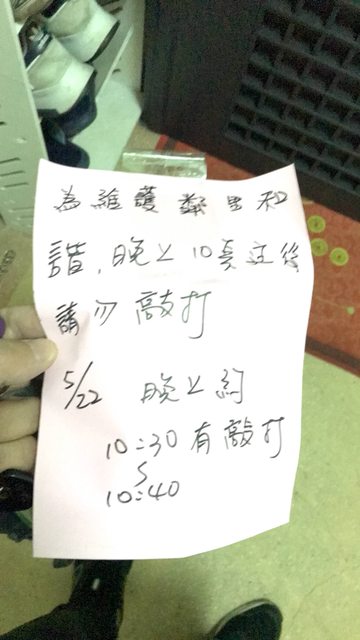 為維護鄰里和
諧，晚上10點過後
請勿敲打
5/22 晚上約
10:30有敲打
~
10:40